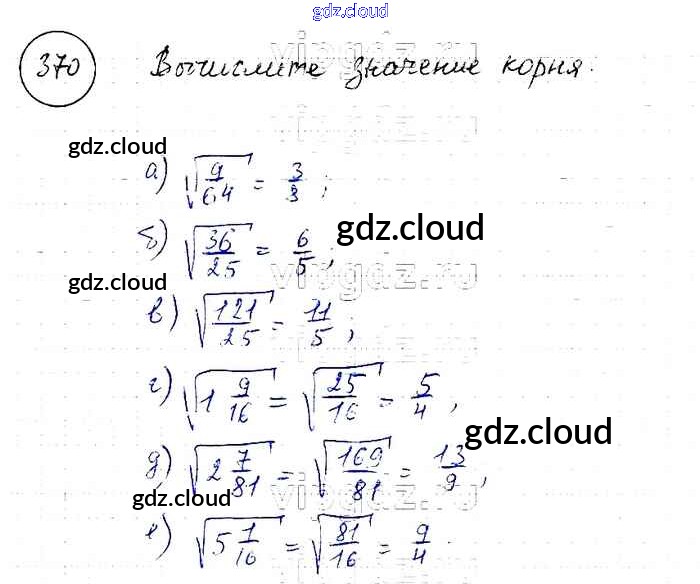 gdz.cloud
370 Вычислите значение корня.
vipgdz.ru
gdz.cloud
а) √(9/64) = 3/8;
б) √(36/25) = 6/5;
gdz.cloud
vipgdz.ru
gdz.cloud
в) √(121/25) = 11/5;
г) √(1 9/16) = √(25/16) = 5/4;
gdz.cloud
д) √(2 7/81) = √(169/81) = 13/9;
vipgdz.ru
gdz.cloud
е) √(5 1/16) = √(81/16) = 9/4.